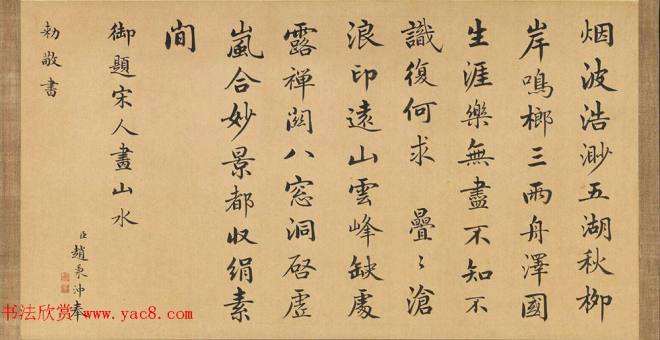 烟波浩渺五湖秋柳
岸鳴榔三兩舟澤國
生涯樂無盡不知不
識復何求 疊〻滄
浪印遠山雲峰缺處
露禪関八窓洞啓虚
嵐合妙景都收絹素
間
御題宋人畫山水
勅敬書
臣趙秉沖奉
书法欣赏→www.yac8.com